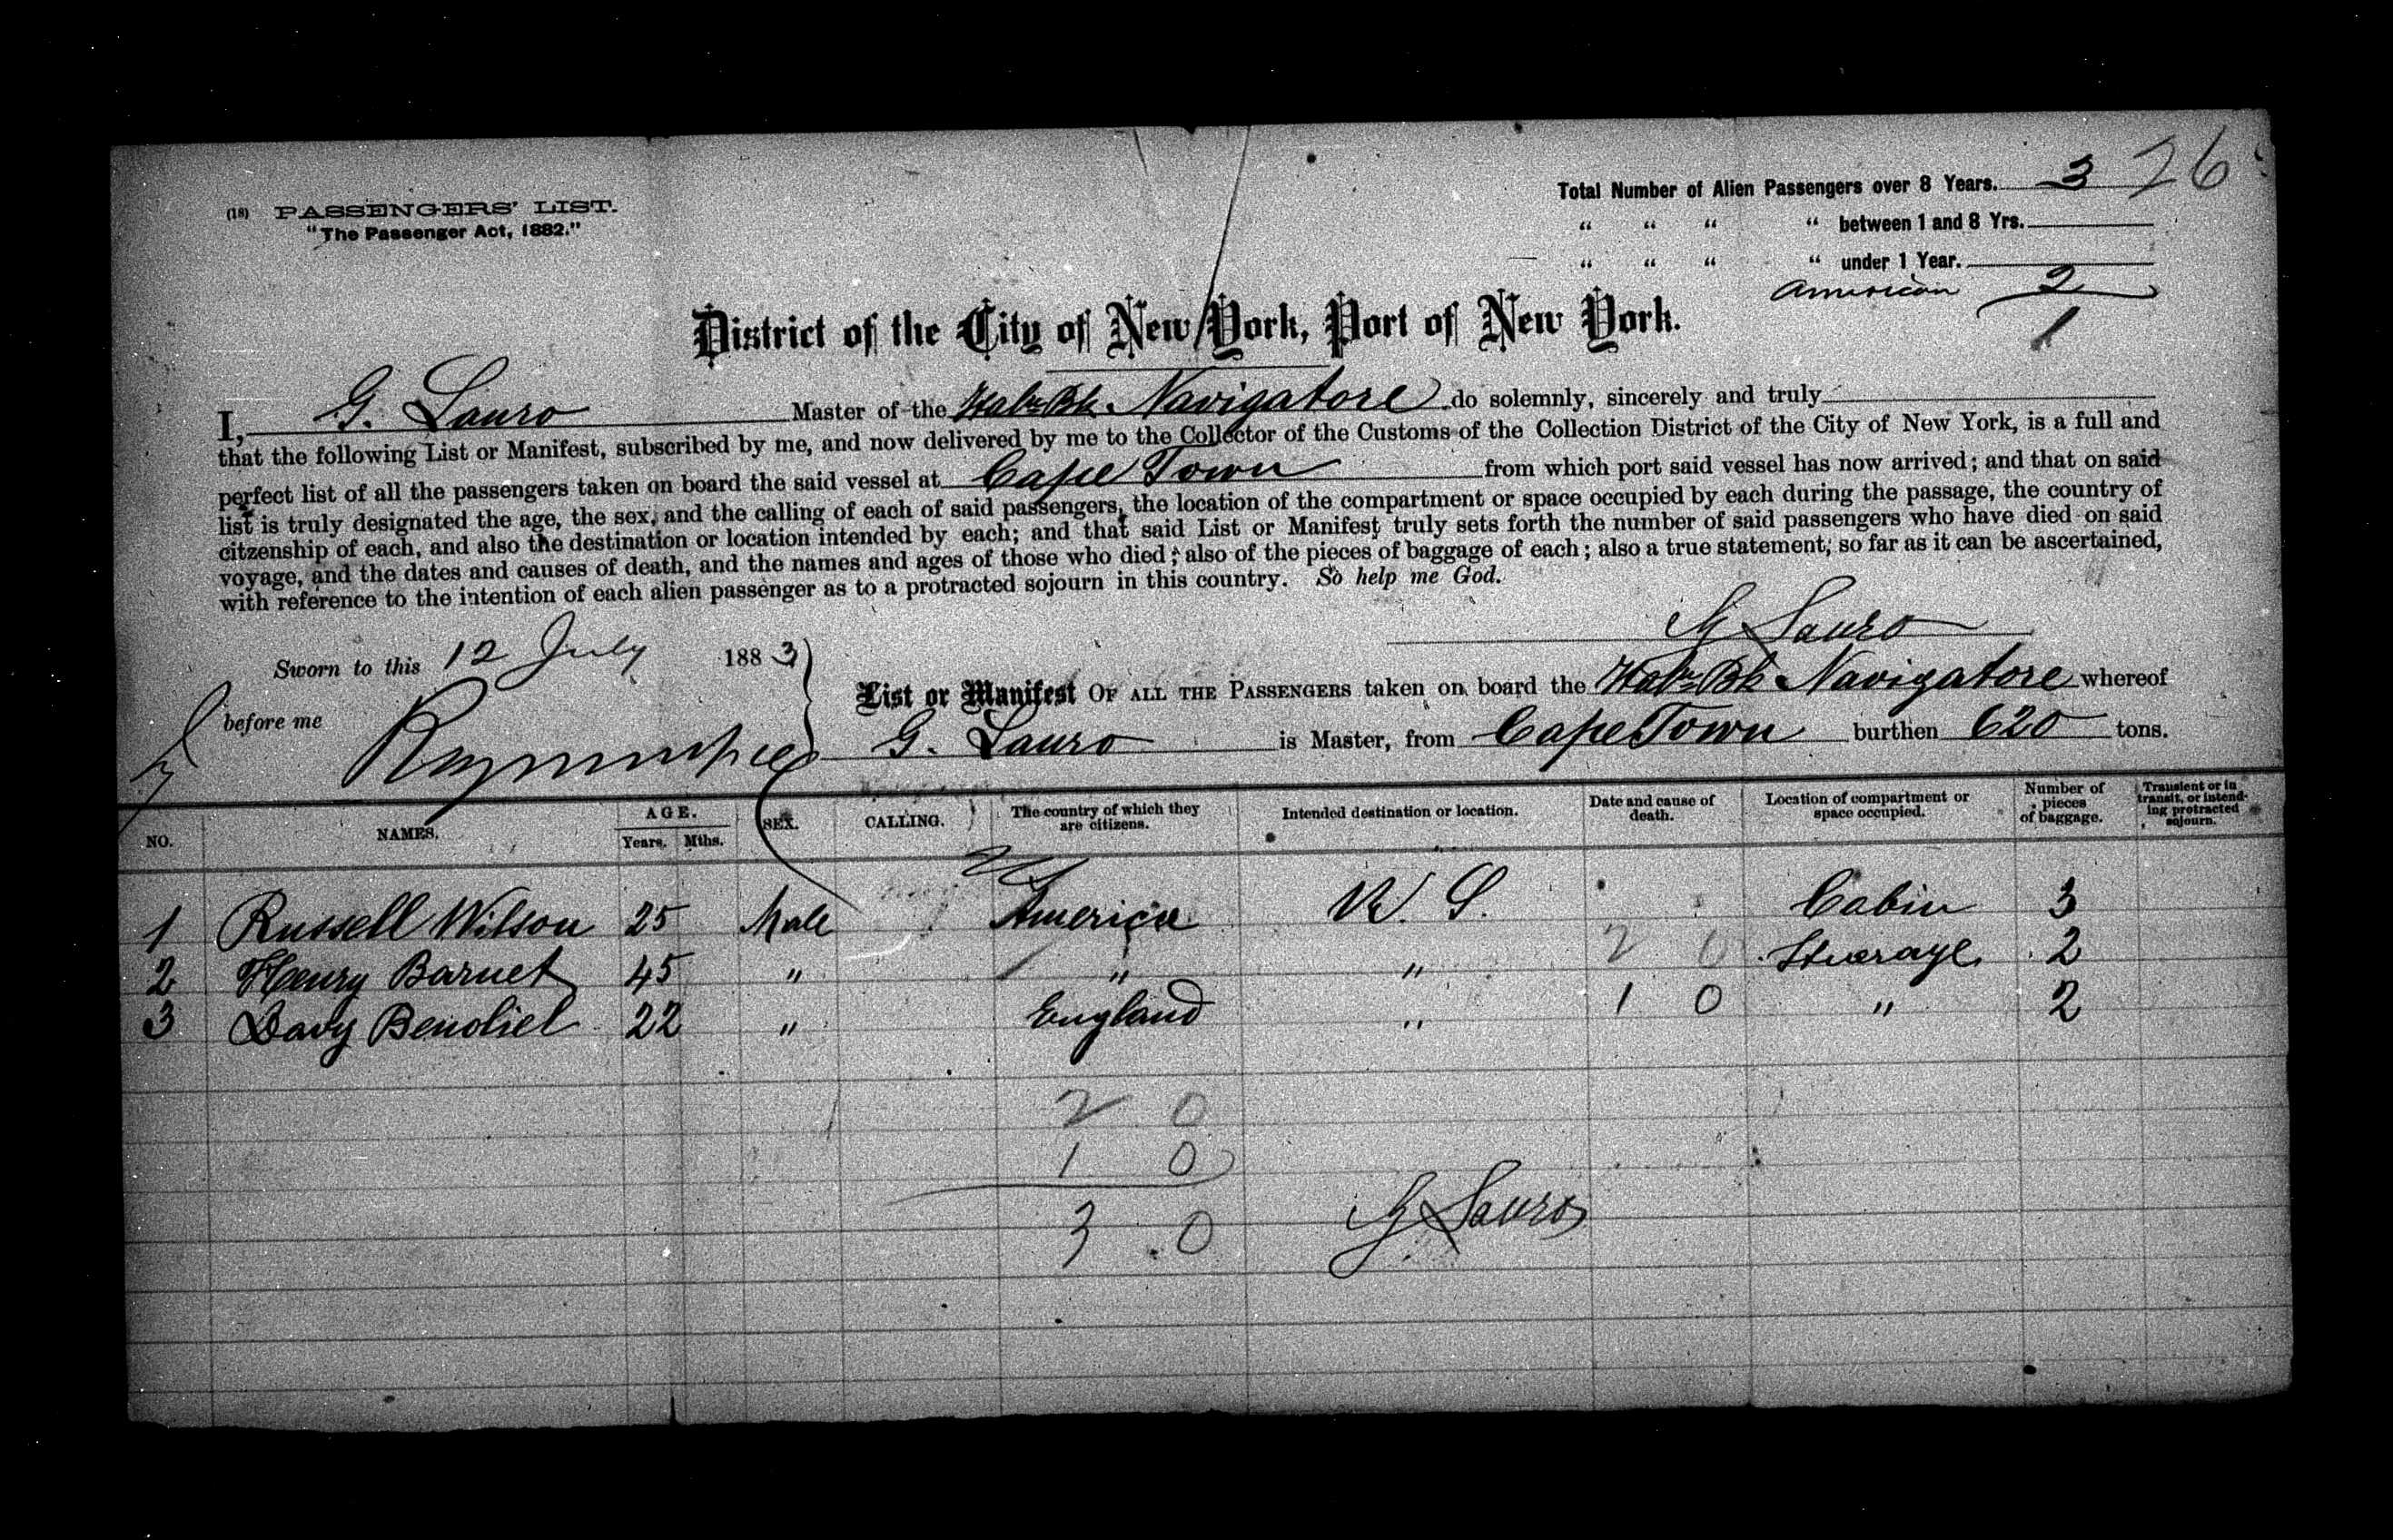 Total Number of Alien Passengers over 8 Years. 3 26
(18) PASSENGERS' LIST.
"The Passenger Act, 1882."
" " " " between 1 and 8 Yrs.
" " " " under 1 Year.
American 2
1
District of the City of New York, Port of New York.
I, G. Lauro Master of the Italn Bk Navigatore do solemnly, sincerely and truly
that the following List or Manifest, subscribed by me, and now delivered by me to the Collector of the Customs of the Collection District of the City of New York, is a full and
perfect list of all the passengers taken on board the said vessel at Cape Town from which port said vessel has now arrived; and that on said
list is truly designated the age, the sex, and the calling of each of said passengers, the location of the compartment or space occupied by each during the passage, the country of
citzenship of each, and also the destination or location intended by each; and that said List or Manifest truly sets forth the number of said passengers who have died on said
voyage, and the dates and causes of death, and the names and ages of those who died; also of the pieces of baggage of each; also a true statement, so far as it can be ascertained,
with reference to the intention of each alien passenger as to a protracted sojourn in this country. So help me God.
G Lauro
Sworn to this 12 July 1883
before me
List or Manifest OF ALL THE PASSENGERS taken on board the Italn Bk Navigatore whereof
G. Lauro is Master, from Cape Town burthen 620 tons.
NO. NAMES. AGE. Years. Mths. SEX. CALLING. The country of which they are citizens. Intended destination or location. Date and cause of death. Location of compartment or space occupied. Number of pieces of baggage. Transient or in transit, or intending protracted sojourn.
1 Russell Wilson 25 Male America U. S. Cabin 3
2 Henry Barnet 45 " " " 2 0 Steerage 2
3 Davy Benoliel 22 " England " 1 0 " 2
2 0
1 0
3 0
G Lauro